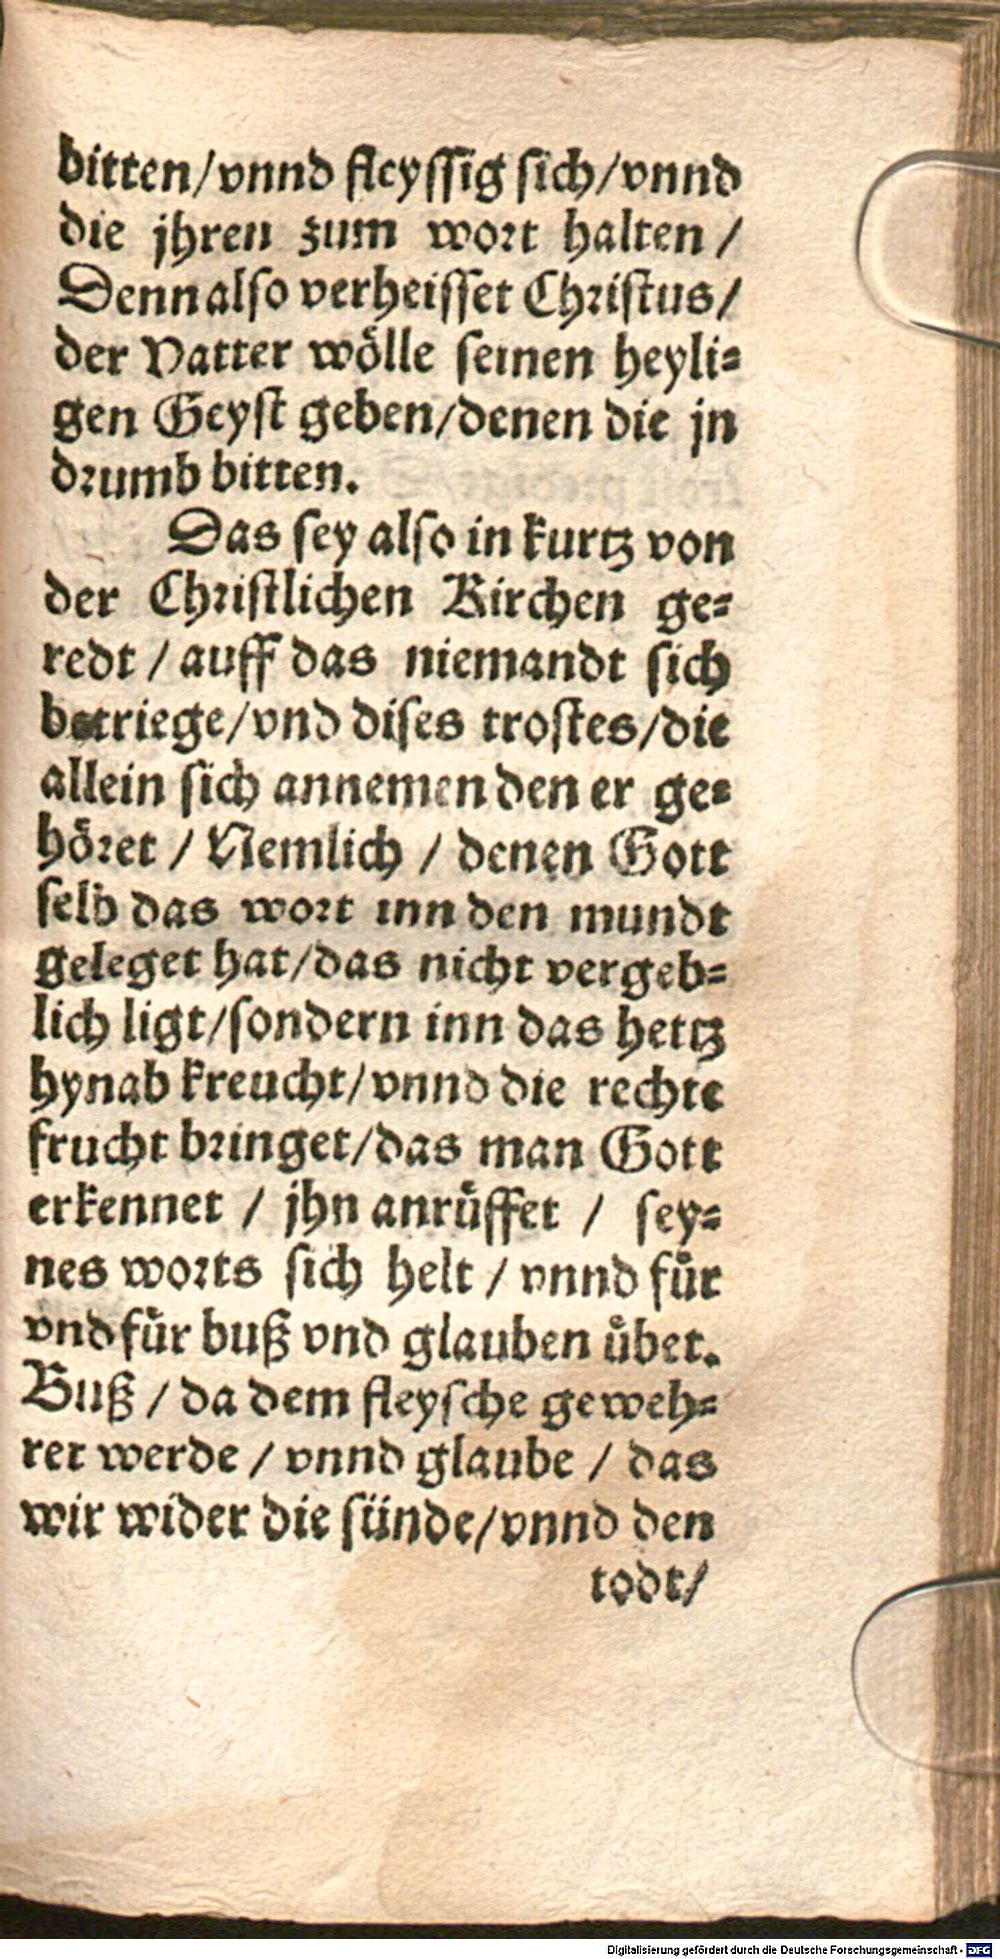 bitten/vnnd fleyssig sich/vnnd
die jhren zum wort halten /
Denn also verheisset Christus/
der Vatter wölle seinen heyli-
gen Geyst geben/denen die jn
drumb bitten.
Das sey also in kurtz von
der Christlichen Kirchen ge-
redt / auff das niemandt sich
betriege/vnd dises trostes/die
allein sich annemen den er ge-
höret / Nemlich / denen Gott
selb das wort inn den mundt
geleget hat/das nicht vergeb-
lich ligt/sondern inn das hertz
hynab kreucht/vnnd die rechte
frucht bringet/das man Gott
erkennet / jhn anrůffet / sey-
nes worts sich helt / vnnd für
vnd für buß vnd glauben übet.
Buß / da dem fleysche geweh-
ret werde / vnnd glaube / das
wir wider die sünde/vnnd den
todt/
Digitalisierung gefördert durch die Deutsche Forschungsgemeinschaft - DFG